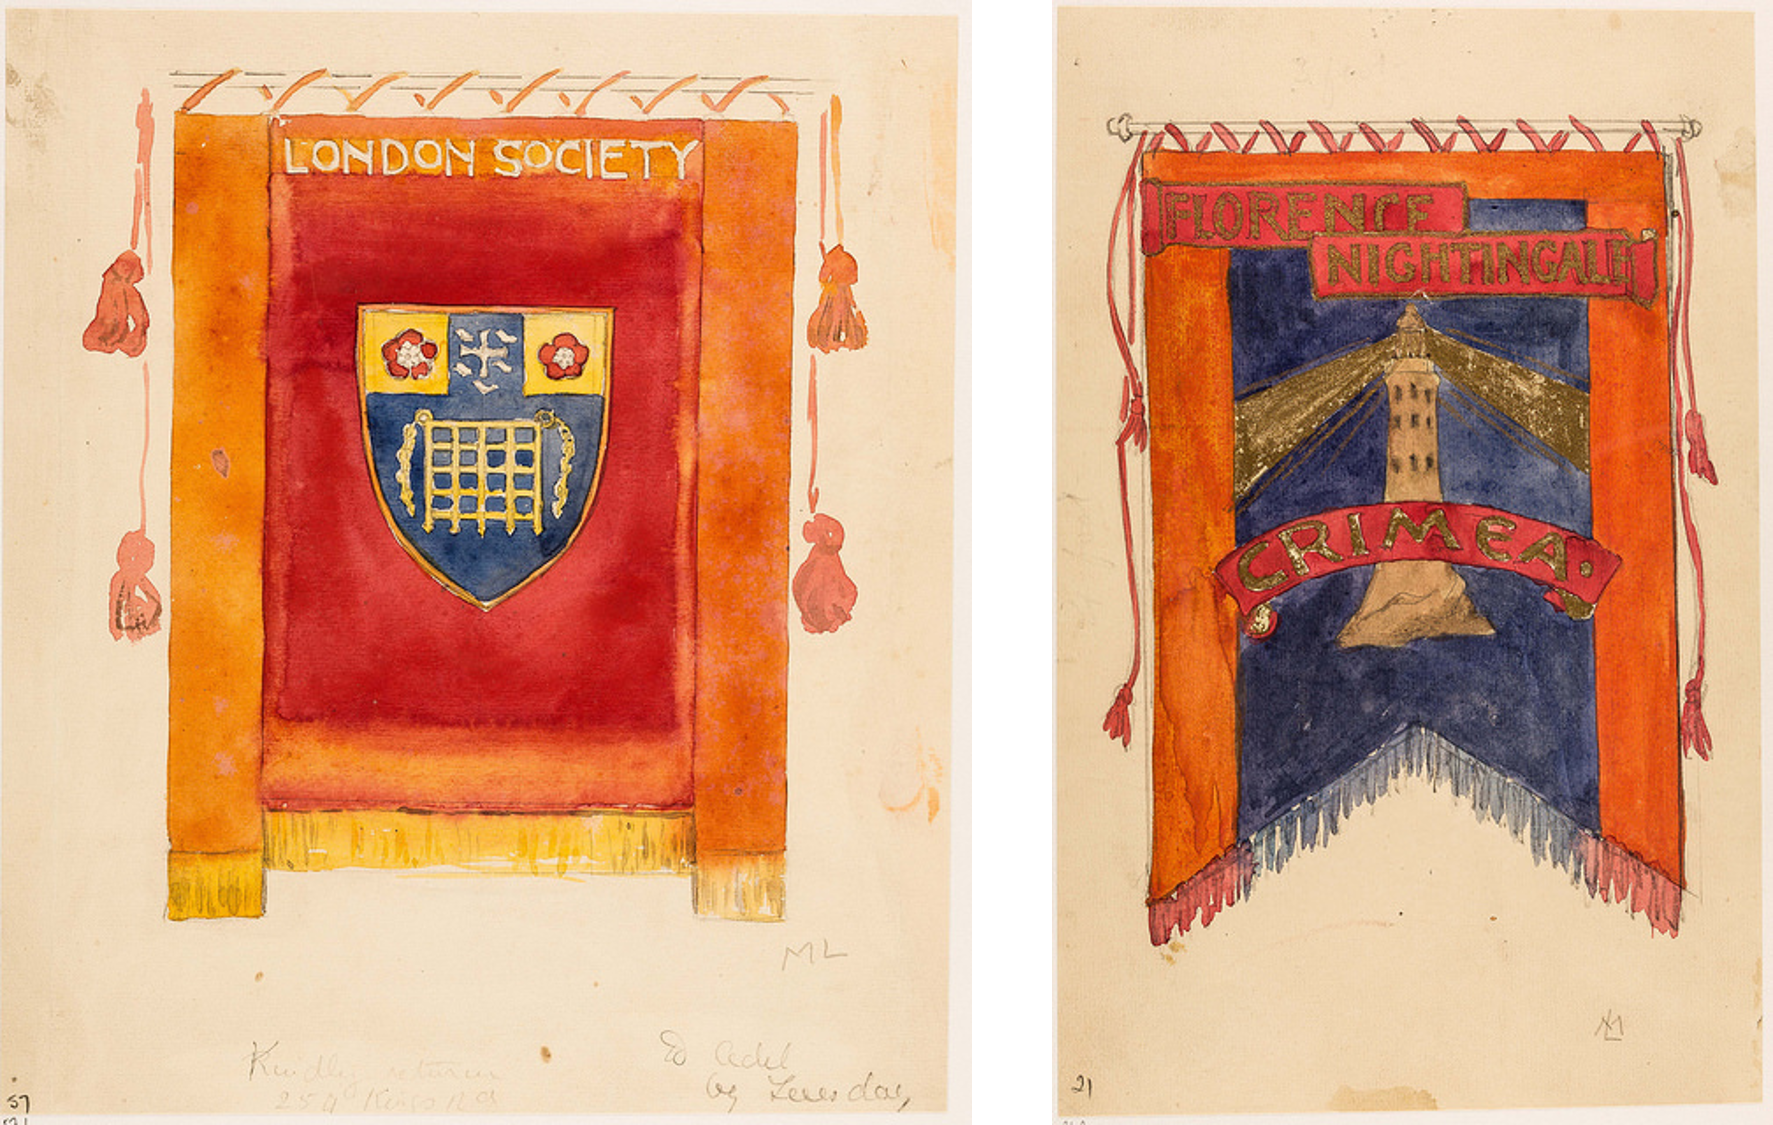 LONDON SOCIETY
ML
Kindly return
254 Kings Rd
by Tuesday
57
FLORENCE
NIGHTINGALE
CRIMEA.
ML
21